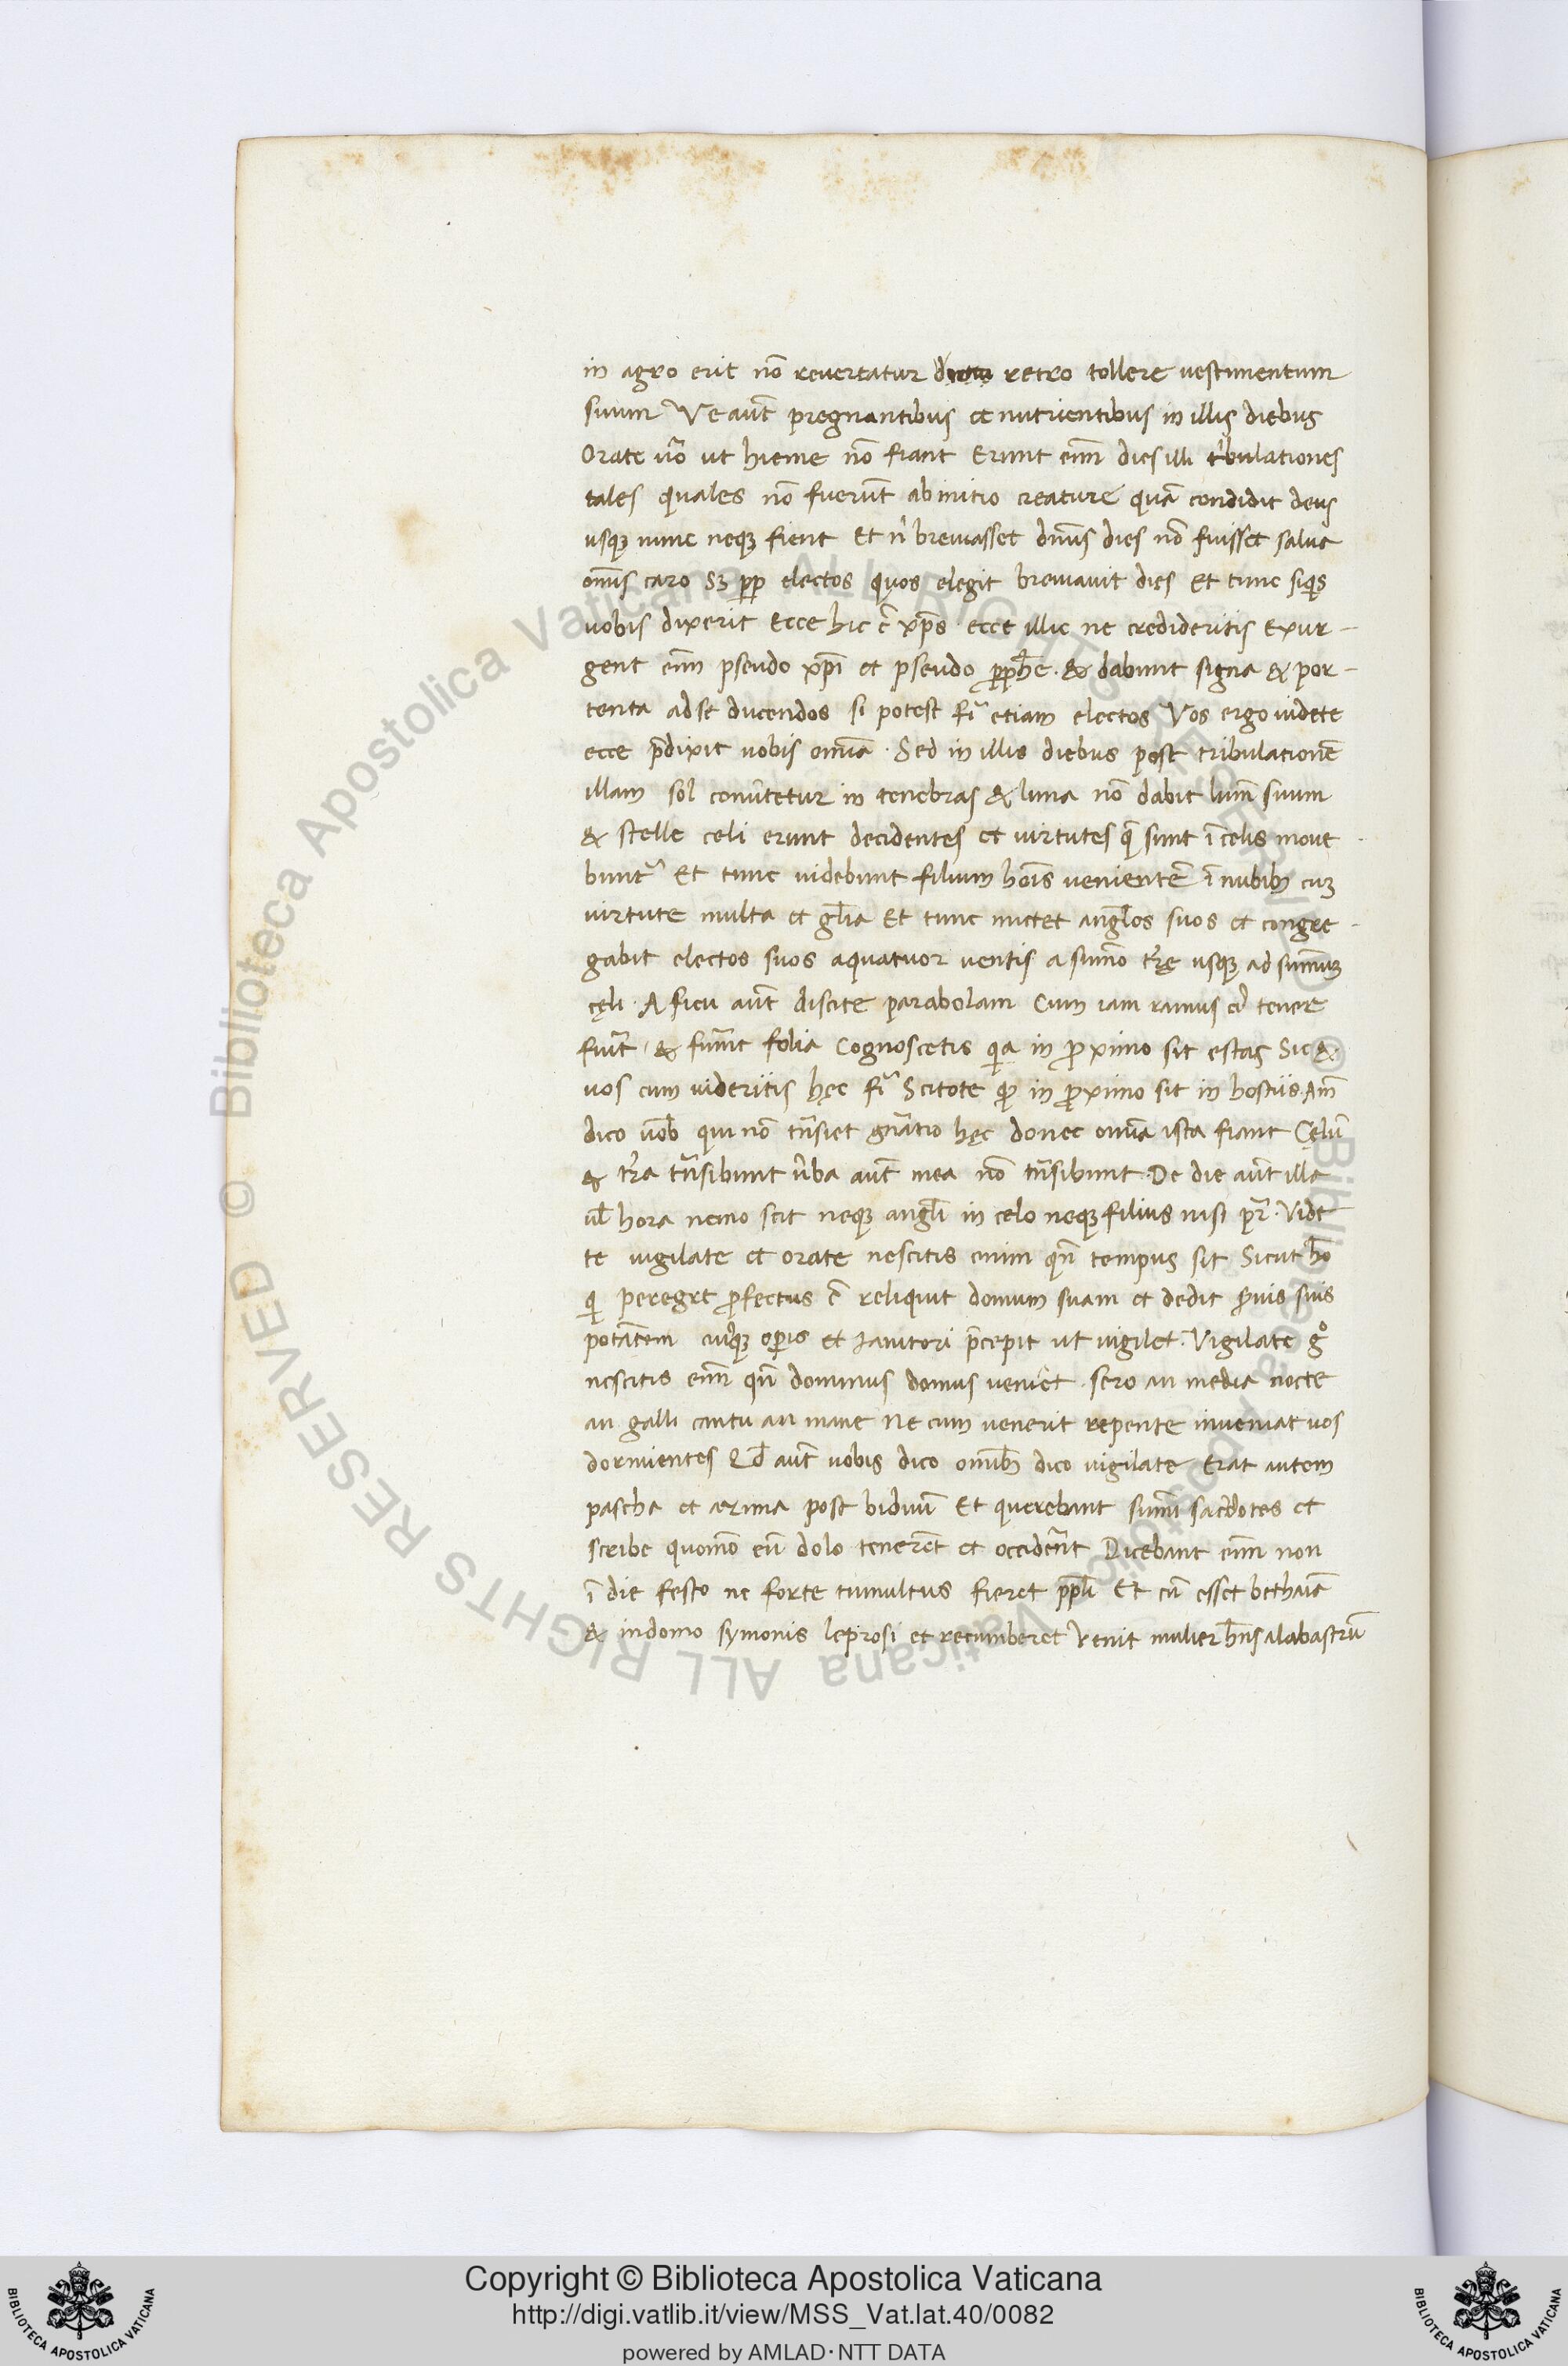 in agro erit nō reuertatur retro tollere uestimentum
suum Ve aūt pregnantibus et nutrientibus in illis diebus
Orate ūo ut hieme nō fiant Erunt enī dies illi tribulationes
tales quales nō fuerūt ab initio creature quā condidit deus
usqꝫ nunc neqꝫ fient Et nī breuiasset dn̄s dies nō fuisset salua
omīs caro Sꝫ pp electos quos elegit breuiauit dies Et tunc siquis
uobis dixerit Ecce hic ē xp̄s ecce illic ne credideritis Exur-
gent enī pseudo xp̄i et pseudo pph̄e · & dabunt signa & por-
tenta ad se ducendos si potest fi etiam electos Vos ergo uidete
ecce p̄dixit uobis omīa · Sed in illis diebus post tribulationē
illam sol conūtetur in tenebras & luna nō dabit lum̄ suum
& stelle celi erunt decidentes et uirtutes q̄ sunt ī celis moue
buntr Et tunc uidebunt filium hoīs uenientē ī nubibꝫ cuꝫ
uirtute multa et gl̄ia Et tunc mictet angl̄os suos et congre-
gabit electos suos a quatuor uentis a sum̄o tr̄ę usqꝫ ad summuꝫ
cęli · A ficu aūt discite parabolam Cum iam ramus ei tener
fuit̄ & fuīt folia Cognoscetis quia in proximo sit estas Sic &
uos cum uideritis hęc fi Scitote qd in proximo sit in hostiis Am̄
dico uob̄ qui nō tn̄siet gn̄atio hęc donec omīa ista fiant Cęlū
& tr̄a tn̄sibunt ūba aūt mea nō tn̄sibunt · De die aūt illa
ul̄ hora nemo scit neqꝫ angl̄i in celo neqꝫ filius nisi pr̄ · Vide
te uigilate et orate nescitis enim qn̄ tempus sit Sicut hō
qi peregre profectus ē reliquit domum suam et dedit ẜuis suis
potātem cuiqꝫ opis et Ianitori p̄cepit ut uigilet · Vigilate gº
nescitis enī qn̄ dominus domus ueniet sero an media nocte
an galli cantu an mane Ne cum uenerit repente inueniat uos
dormientes Qd̄ aūt uobis dico omībꝫ dico uigilate Erat autem
pascha et azima post biduū Et querebant summi sacdotes et
scribe quomō eū dolo tenerēt et occiderēt Dicebant enī non
ī die festo ne forte tumultus fieret ppl̄i Et cū esset bethaniē
& in domo symonis leprosi et recumberet Venit mulier hn̄s alabastrū
© Biblioteca Apostolica Vaticana ALL RIGHTS RESERVED © Biblioteca Apostolica Vaticana ALL RIGHTS RESERVED
Copyright © Biblioteca Apostolica Vaticana
http://digi.vatlib.it/view/MSS_Vat.lat.40/0082
powered by AMLAD·NTT DATA
BIBLIOTECA APOSTOLICA VATICANA
BIBLIOTECA APOSTOLICA VATICANA